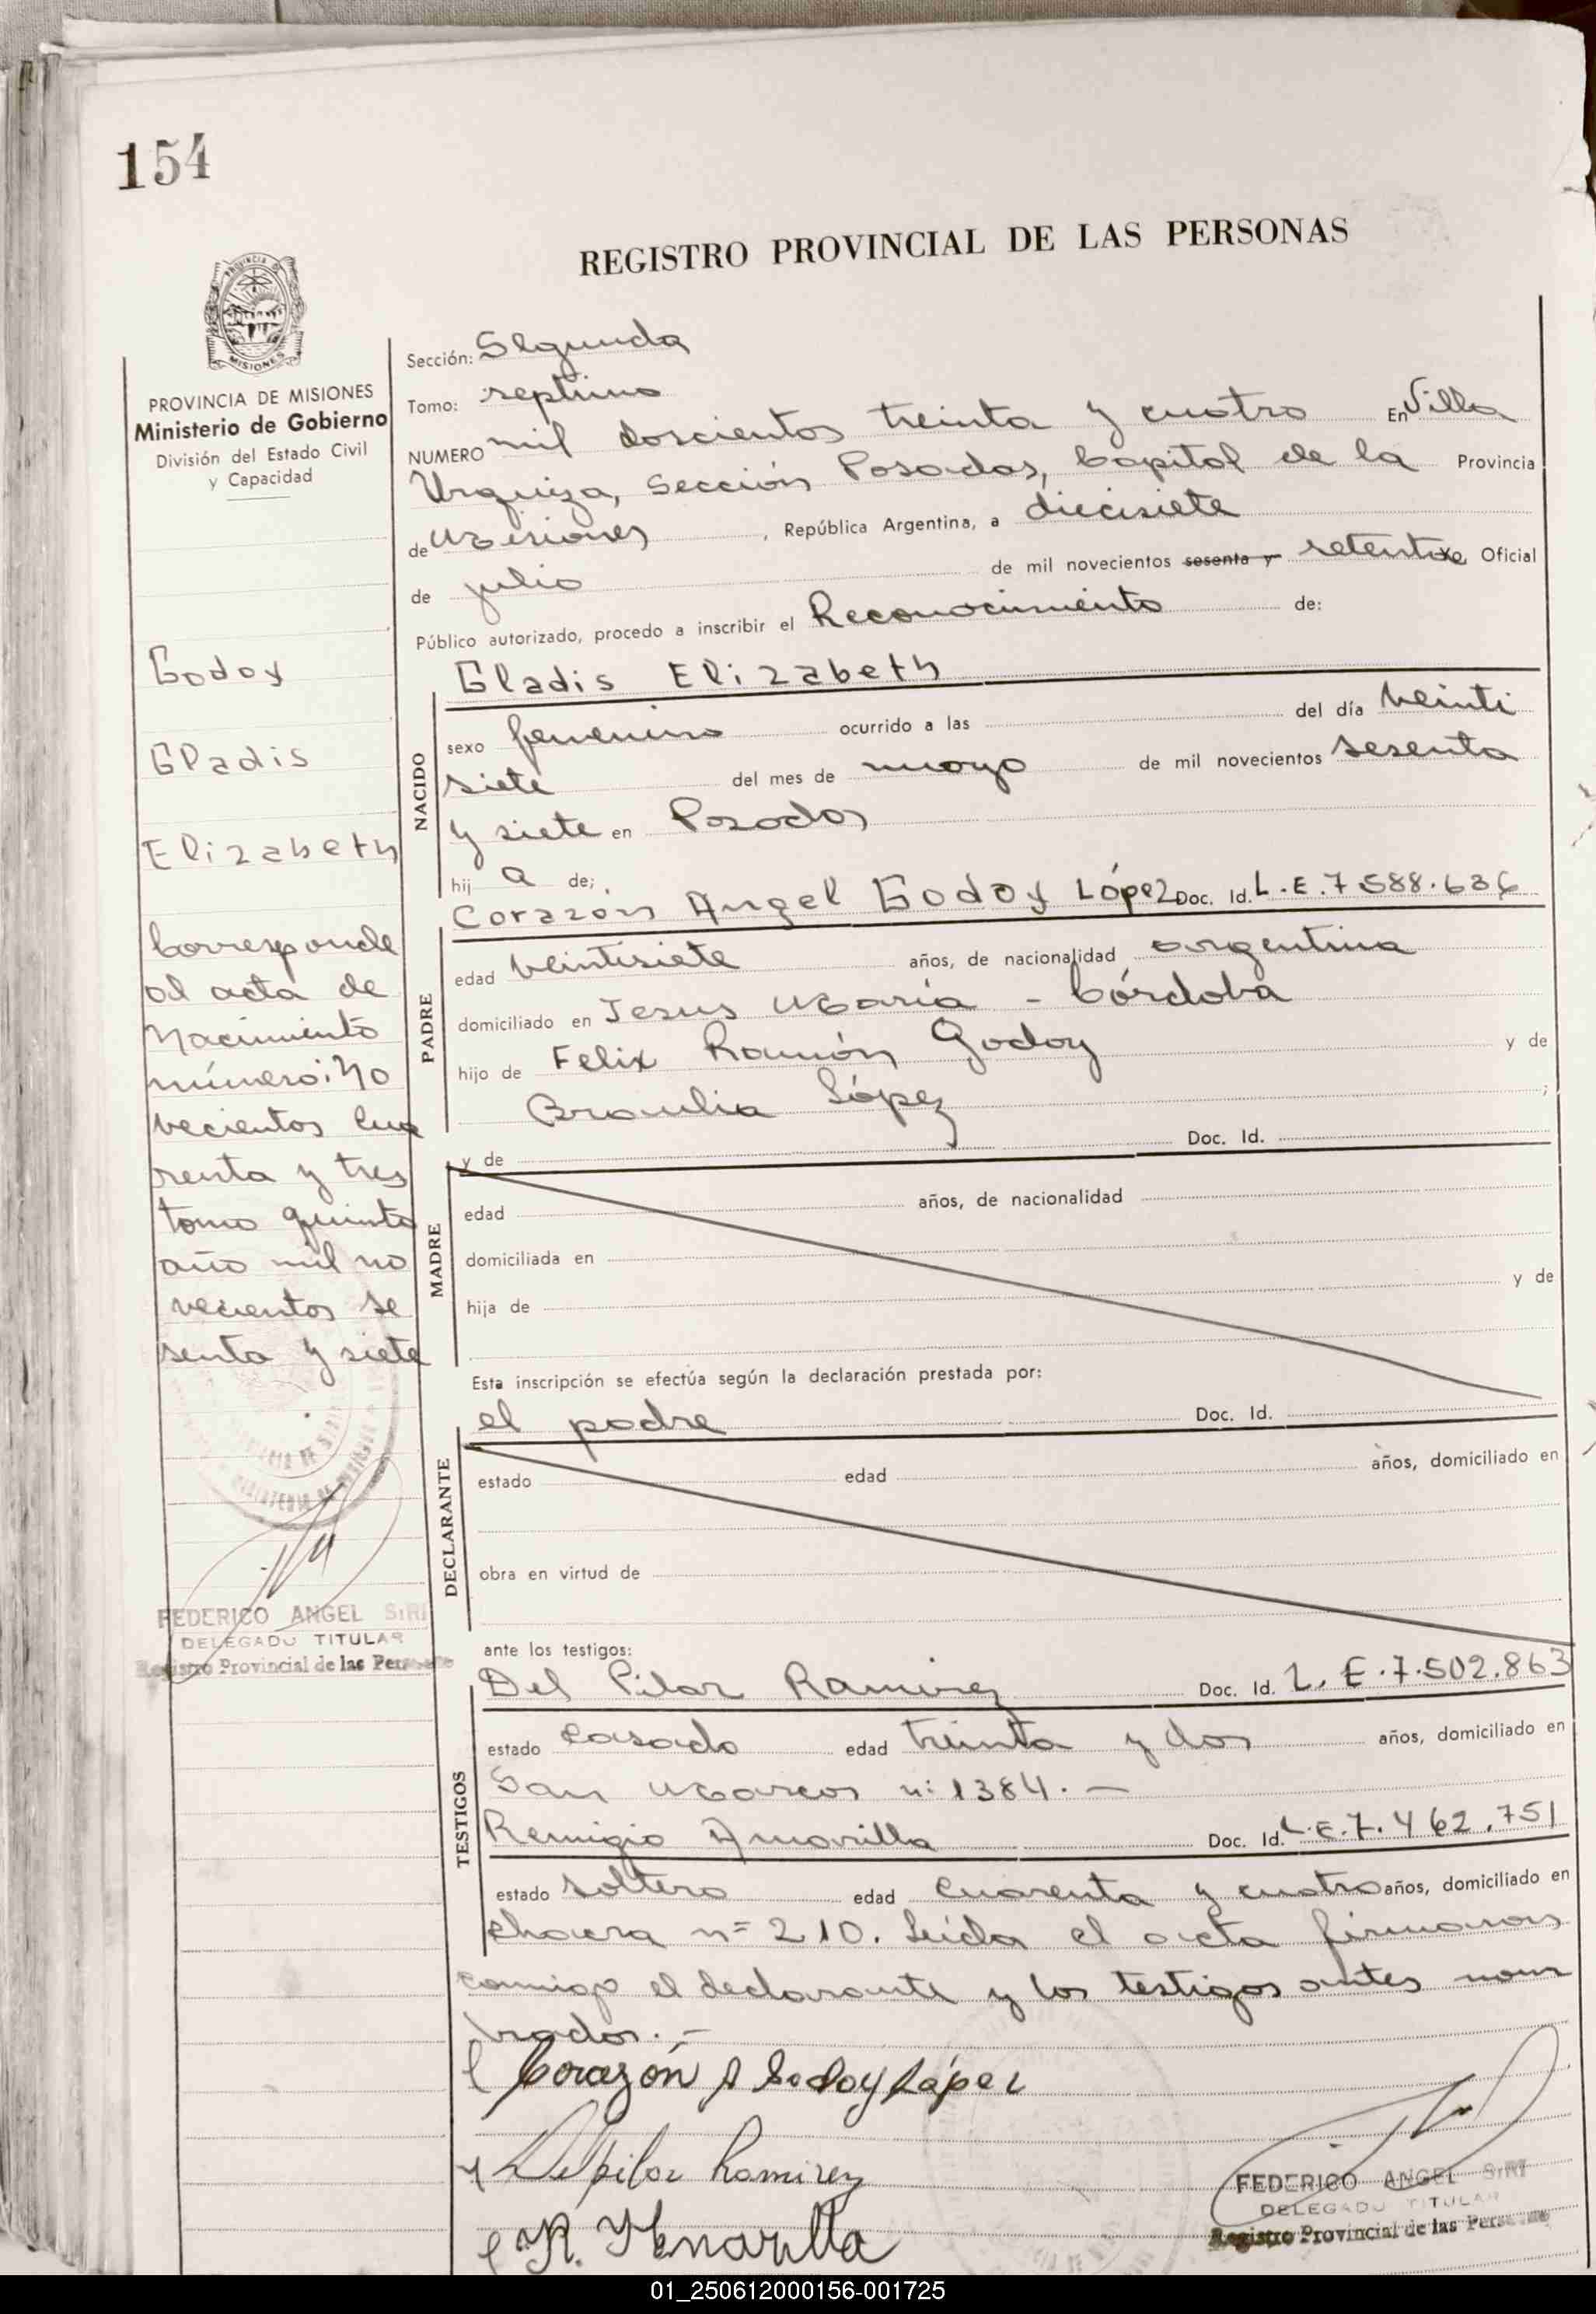 154
REGISTRO PROVINCIAL DE LAS PERSONAS
PROVINCIA DE MISIONES
Ministerio de Gobierno
División del Estado Civil
y Capacidad
Godoy
Gladis
Elizabeth
Corresponde
al acta de
Nacimiento
número: No
vecientos cua
renta y tres
tomo quinto
año mil no
vecientos se
senta y siete
FEDERICO ANGEL SIRI
DELEGADO TITULAR
Registro Provincial de las Personas
Sección: Segunda
Tomo: septimo
NUMERO mil doscientos treinta y cuatro En Villa
Urquiza, Sección Posadas, Capital de la Provincia
de Misiones, República Argentina, a diecisiete
de julio de mil novecientos sesenta y setenta Oficial
Público autorizado, procedo a inscribir el Reconocimiento de:
Gladis Elizabeth
NACIDO
sexo femenino ocurrido a las del día veinti
siete del mes de mayo de mil novecientos sesenta
y siete en Posadas
hij a de;
Corazón Angel Godoy López Doc. Id. L.E.7.588.636
PADRE
edad veintisiete años, de nacionalidad argentina
domiciliado en Jesus María - Córdoba
hijo de Felix Ramón Godoy y de
Braulia López ;
y de Doc. Id.
MADRE
edad años, de nacionalidad
domiciliada en
hija de y de
Esta inscripción se efectúa según la declaración prestada por:
el padre Doc. Id.
DECLARANTE
estado edad años, domiciliado en
obra en virtud de
ante los testigos:
Del Pilar Ramirez Doc. Id. L.E.7.502.863
TESTIGOS
estado casado edad treinta y dos años, domiciliado en
San Marcos n: 1384. —
Remigio Amarilla Doc. Id. L.E.7.462.751
estado soltero edad cuarenta y cuatro años, domiciliado en
chacra n= 210. Leída el acta firmaron
conmigo el declarante y los testigos antes nom
brados. -
Corazón A Godoy López
Delpilar Ramirez
R. Amarilla
FEDERICO ANGEL SIRI
DELEGADO TITULAR
Registro Provincial de las Personas
01_250612000156-001725